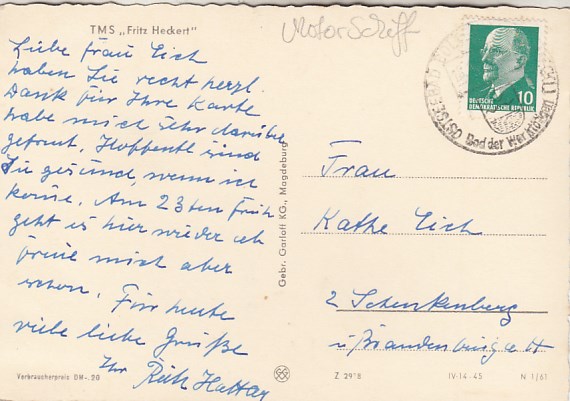 TMS „Fritz Heckert"
Motor Schiff
Liebe Frau Eich
haben Sie recht herzl.
Dank für Ihre Karte
habe mich sehr darüber
gefreut. Hoffentl. sind
Sie gesund, wenn ich
komme. Am 23ten Früh
geht es hier wieder ab
freue mich aber
schon. Für heute
viele liebe Grüße
Ihr Ruth
Verbraucherpreis DM -.20
Gebr. Garloff KG., Magdeburg
10
DEUTSCHE
DEMOKRATISCHE REPUBLIK
OSTSEEBAD
Bad der Werktätigen
Frau
Käthe Eich
2 Schenkenberg
ü/Brandenburg a H
Z 29"8
IV-14-45
N 1/61